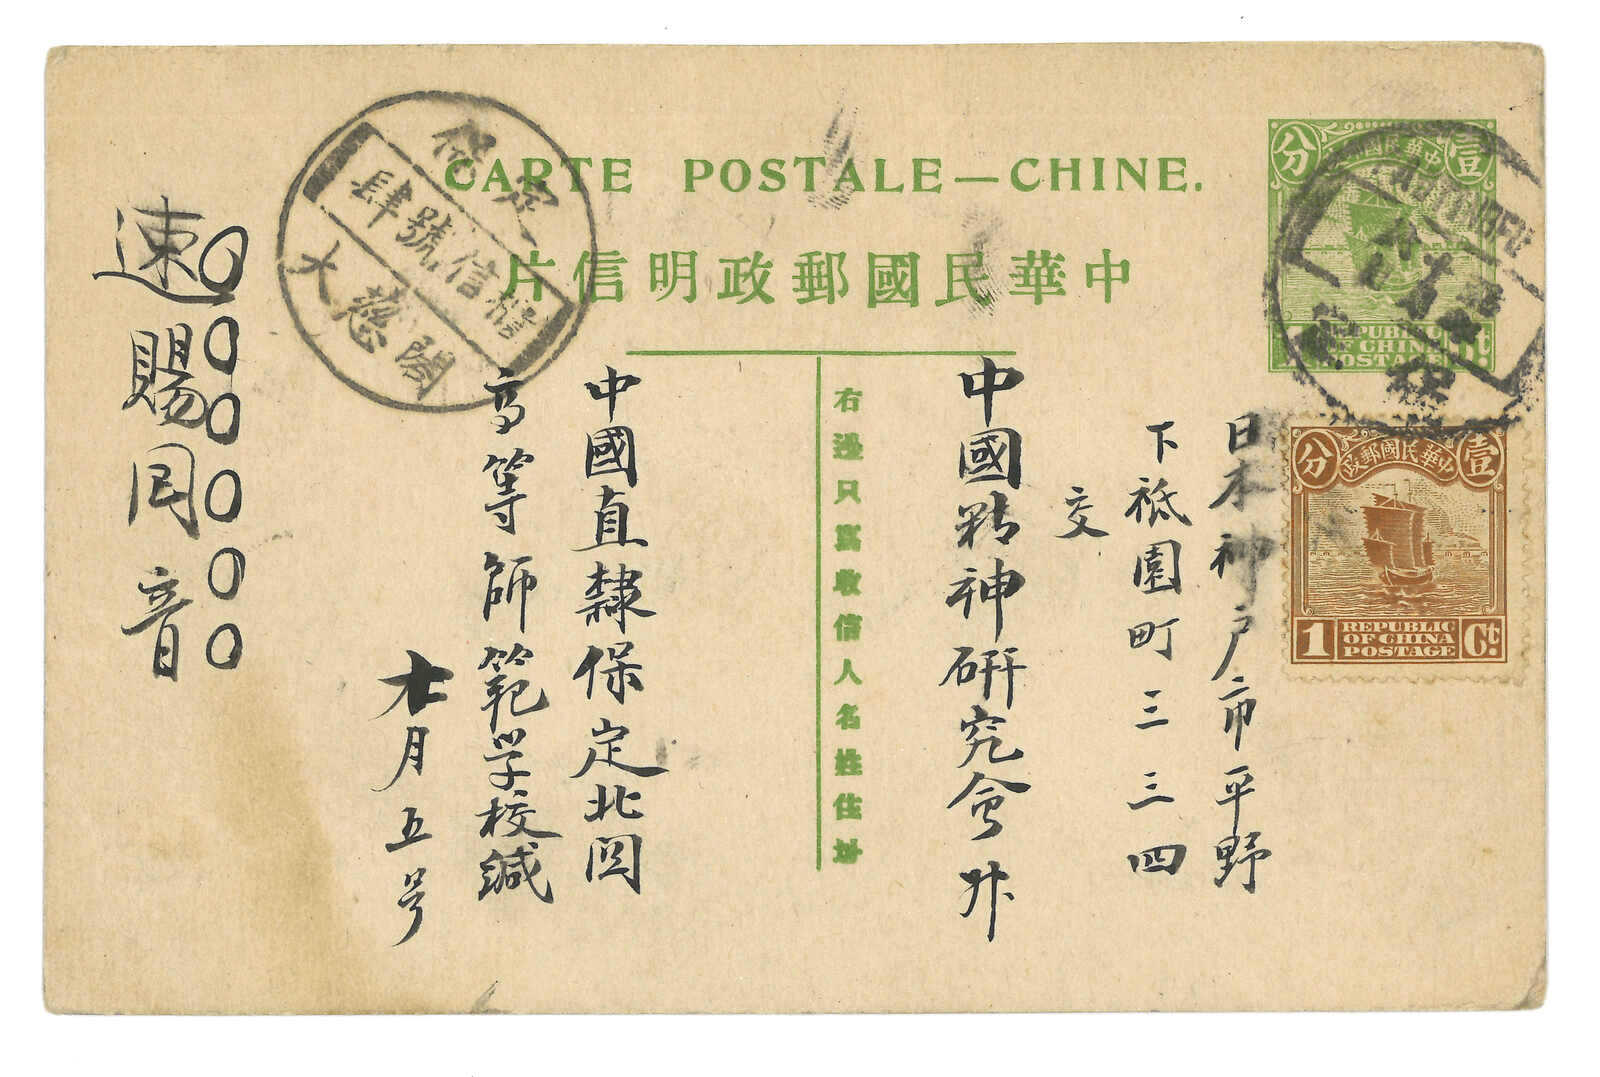 CARTE POSTALE—CHINE.
中華民國郵政明信片
右邊只寫收信人名姓住址
中華民國郵政
壹
分
REPUBLIC
OF CHINA
POSTAGE
中華民國郵政
壹
分
1
REPUBLIC
OF CHINA
POSTAGE
Ct.
日本神戶市平野
下祗園町三三四
交
中國精神研究會
中國直隸保定北關
高等師範學校緘
月五号
速賜回音
保定
肆號信櫃
大慈閣